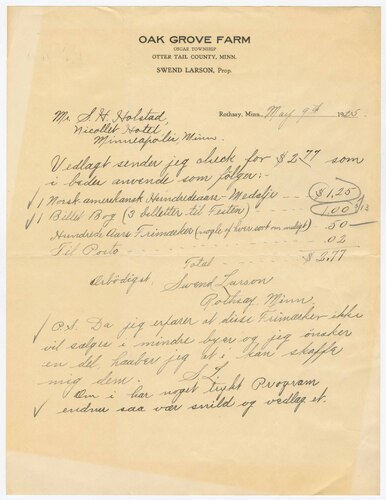 OAK GROVE FARM
OSCAR TOWNSHIP
OTTER TAIL COUNTY, MINN.
SWEND LARSON, Prop.
Rothsay, Minn., May 9th 1925
Mr. S. H. Holstad,
Nicollet Hotel,
Minneapolis Minn.
Vedlagt sender jeg check for $2.77 som
i bedes anvende som følger:-
Norsk-amerikansk Hundredeaars-Medalje --- $1.25
Billet Bog (3 billetter til Festen) --- 1.00
Hundrede Aars Frimærker (nogle af hver sort om muligt) .50
Til Porto .02
Total --- $2.77
Ærbødigst, Swend Larson
Rothsay Minn
P.S. Da jeg erfarer at disse Frimærker ikke
vil sælges i mindre byer og jeg ønsker
en del, haaber jeg at i kan skaffe
mig dem. S. L.
Om i har noget trykt Program
endnu saa vær snild og vedlæg et.